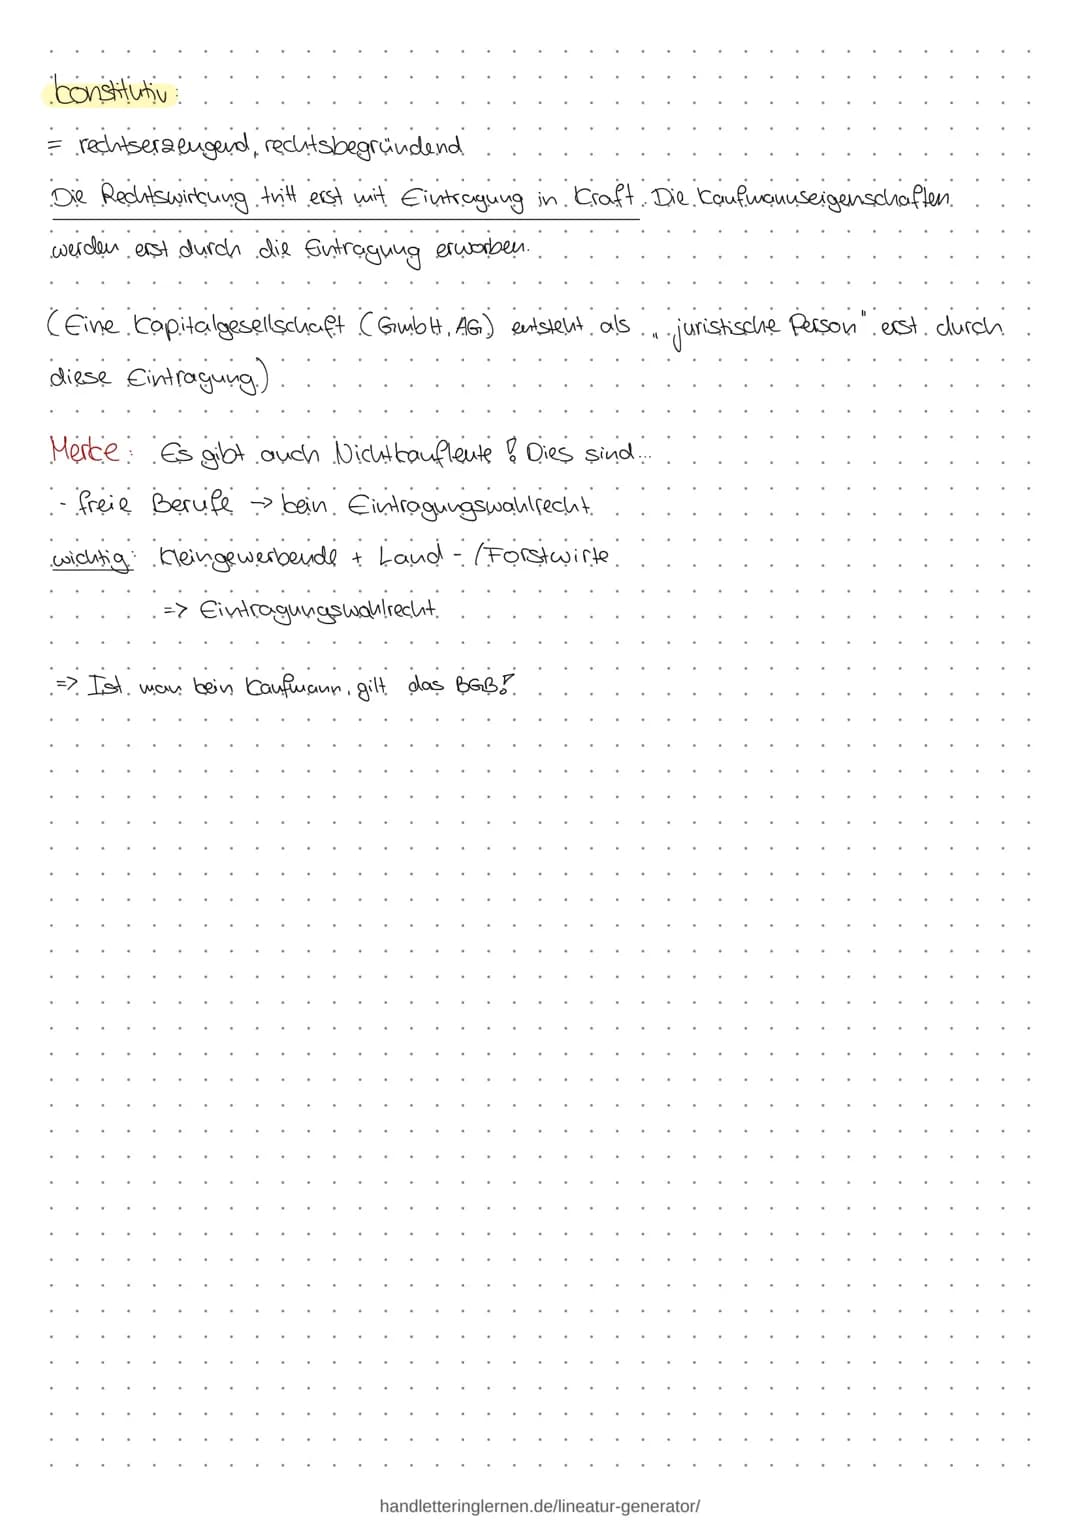 konstitutiv:
= rechtserzeugend, rechtsbegründend
Die Rechtswirkung tritt erst mit Eintragung in Kraft. Die Kaufmannseigenschaften
werden erst durch die Eintragung erworben.
(Eine Kapitalgesellschaft (GmbH, AG) entsteht als „juristische Person" erst durch
diese Eintragung.)
Merke: Es gibt auch Nichtkaufleute! Dies sind...
- freie Berufe → kein Eintragungswahlrecht
wichtig: Kleingewerbende + Land-/Forstwirte
=> Eintragungswahlrecht
=> Ist man kein Kaufmann, gilt das BGB!
handletteringlernen.de/lineatur-generator/